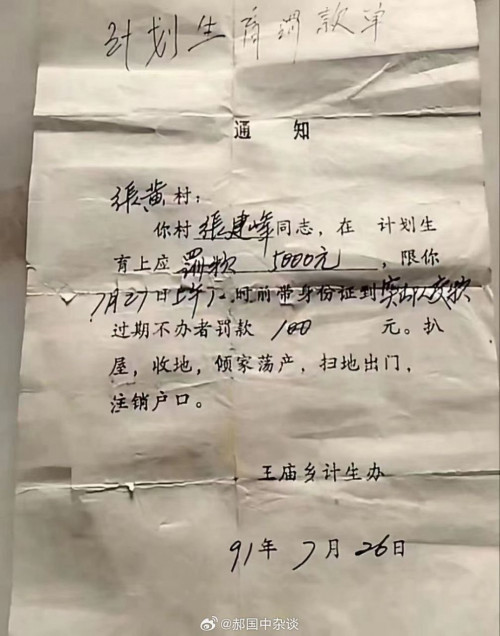 计划生育罚款单
通知
张黄村:
你村张建峰同志,在 计划生
育上座 罚款 5000元,限你
7月27日上午12时前带身份证到
过期不办者罚款 100 元。扒
屋,收地,倾家荡产,扫地出门,
注销户口。
王庙乡计生办
91年7月26日
@郝国中杂谈